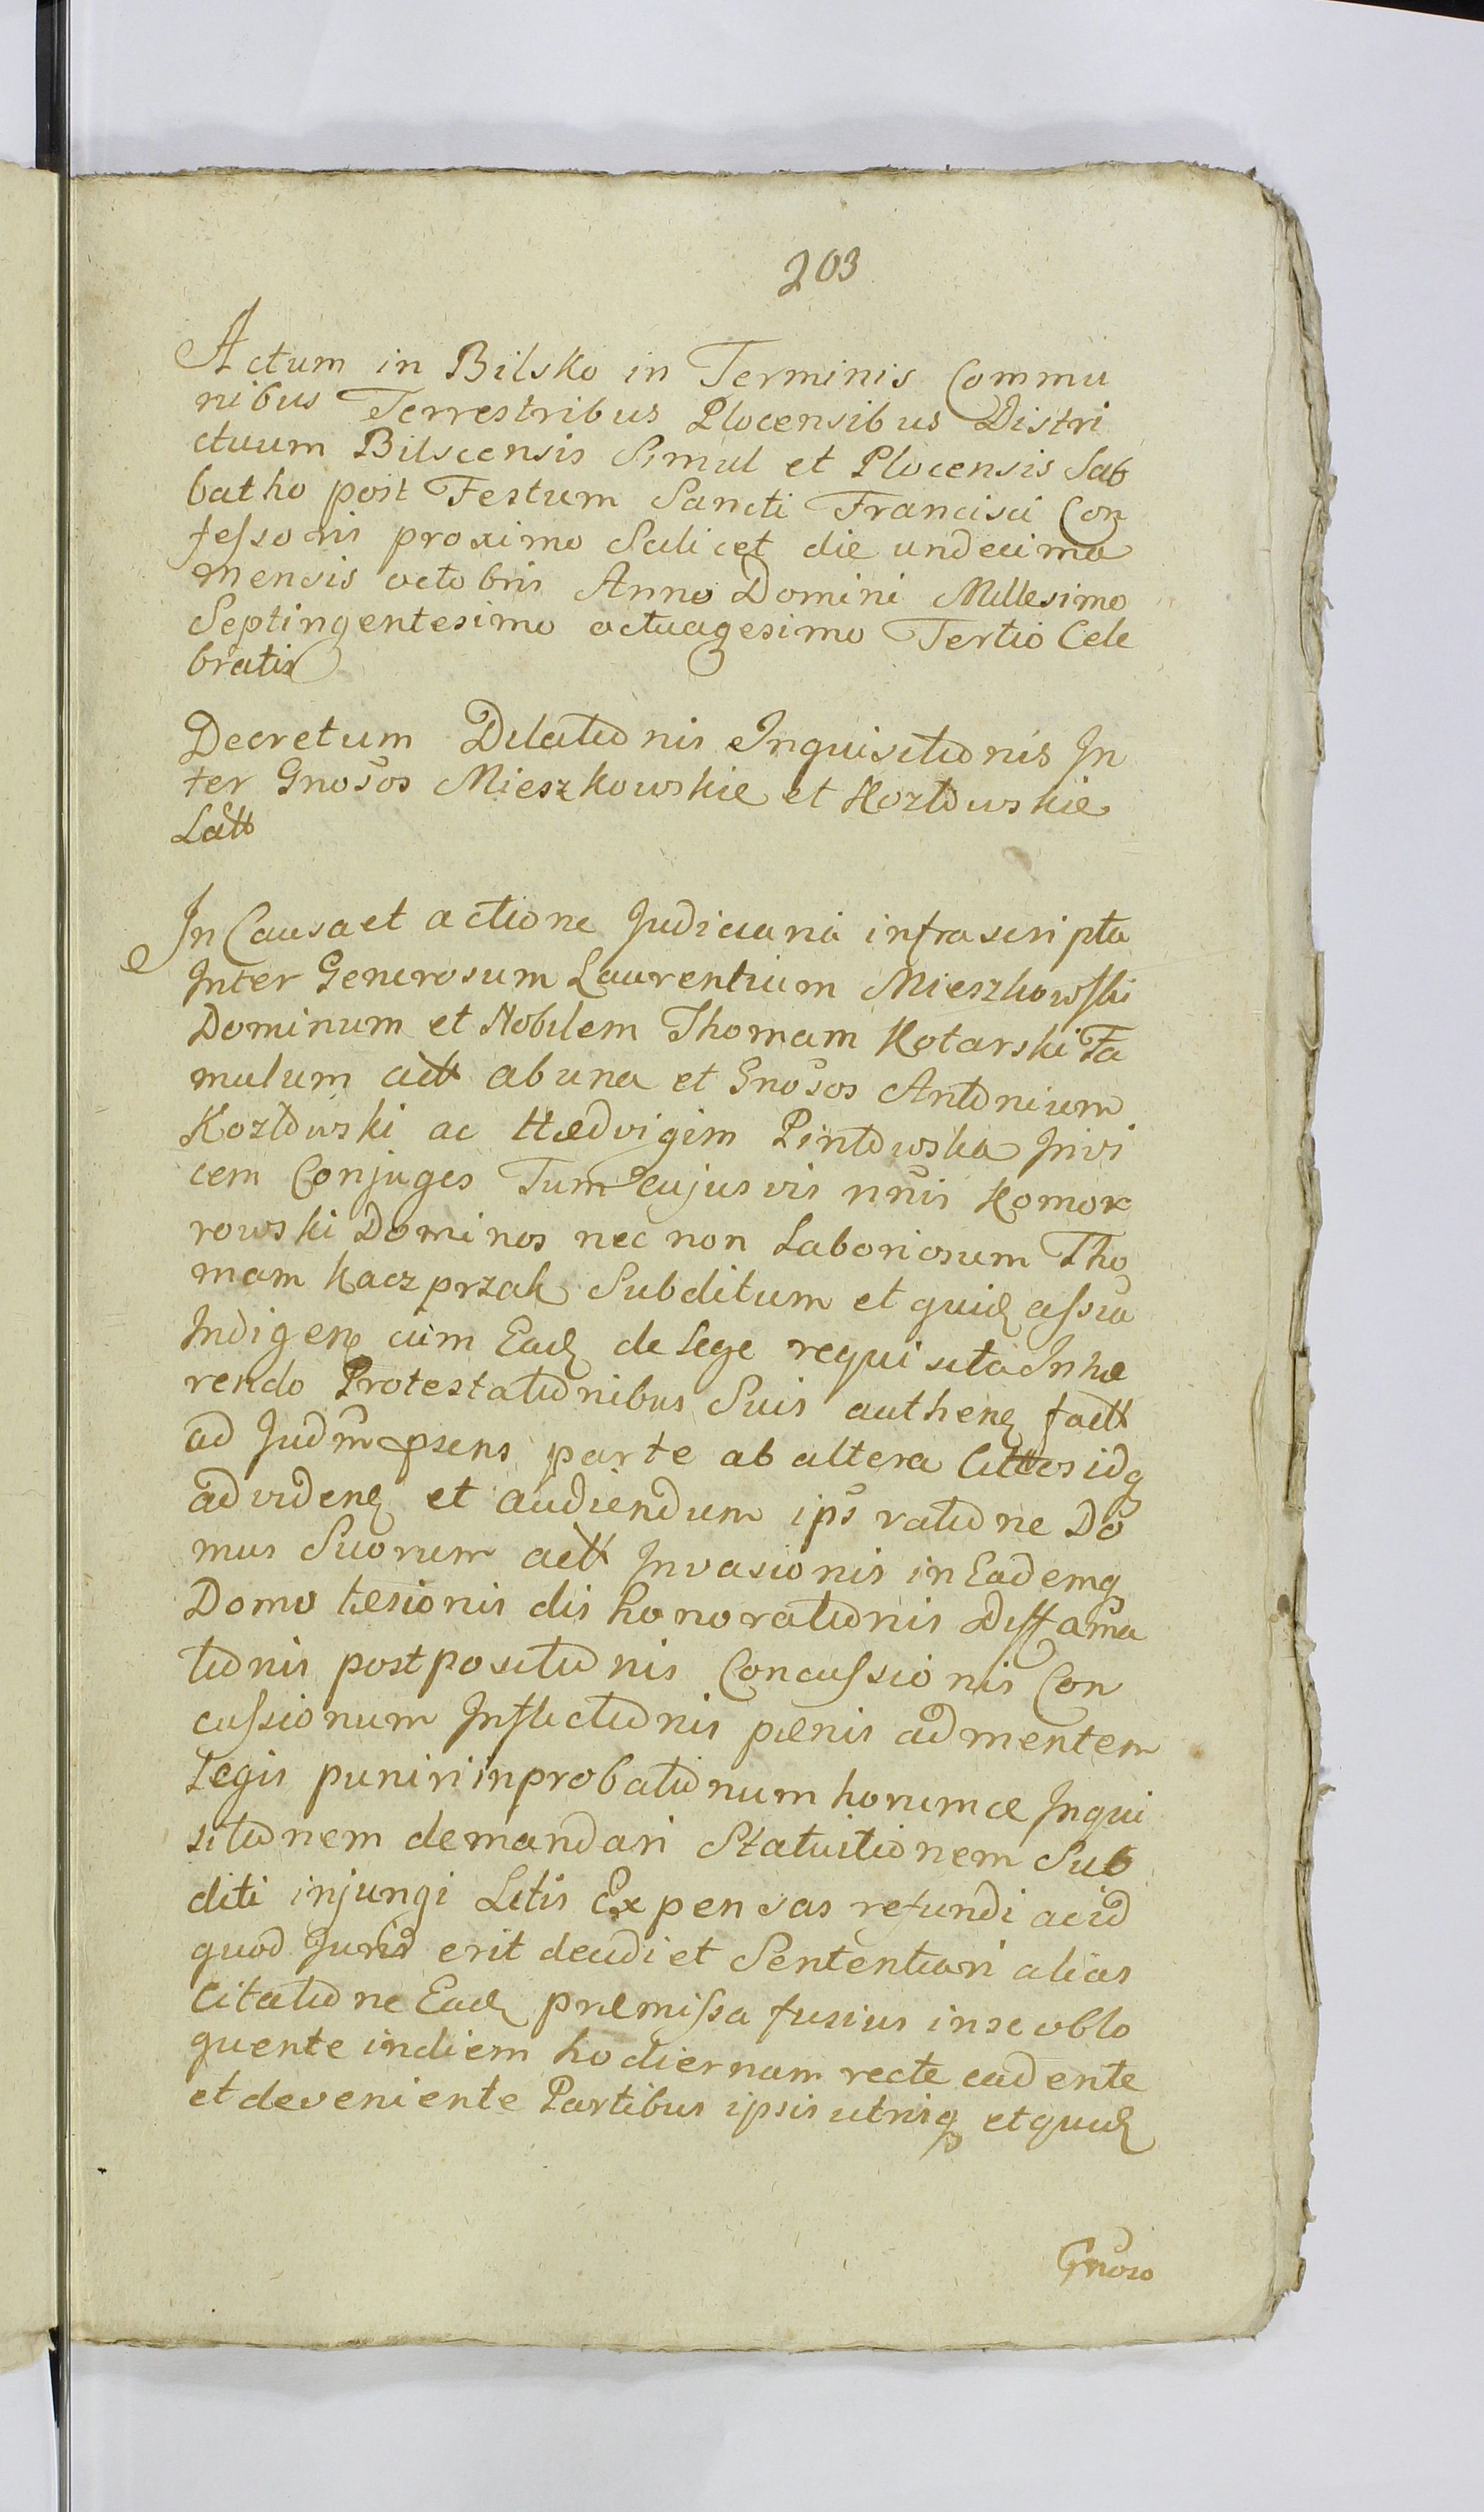 203
Actum in Bilsko in Terminis Commu
nibus Terrestribus Plocensibus Distri
ctuum Bilscensis Simul et Plocensis Sab
batho post Festum Sancti Francisci Con
fessoris proximo Scilicet die undecima
mensis octobris Anno Domini Millesimo
Septingentesimo octuagesimo Tertio Cele
bratis
Decretum Dilationis Inquisitionis In
ter Gnosos Mieszkowskie et Kozłowskie
Latt
In Causa et actione Judiciaria infrascripta
Inter Generosum Laurentium Mieszkowski
Dominum et Nobilem Thomam Kotarski Fa
mulum actt ab una et Gnosos Antonium
Kozłowski ac Hedvigim Pintowska Invi
cem Conjuges Tum cujusvis nnis Komor
rowski Dominos nec non Laboriosum Tho
mam Kaczprzak Subditum et quid assia
Indigen cum Ead de Lege requisita Inhæ
rendo Protestationibus Suis authen factt
ad Judm psens parte ab altera Cittos idq
ad viden et audiendum ips ratione Do
mus Suorum actt Invasionis in Eademq
Domo læsionis dishonorationis Diffama
tionis postpositionis Concussionis Con
cussionum Inflictionis pœnis ad mentem
Legis puniri in probationum horumce Inqui
sitionem demandari Statuitionem Sub
diti injungi Litis Expensas refundi ac id
quod Juris erit decidi et Sententiari alias
Citatione Ead præmissa fusius in se oblo
quente in diem hodiernam recte cadente
et deveniente Partibus ipsis utrisq et quid
Gnoso